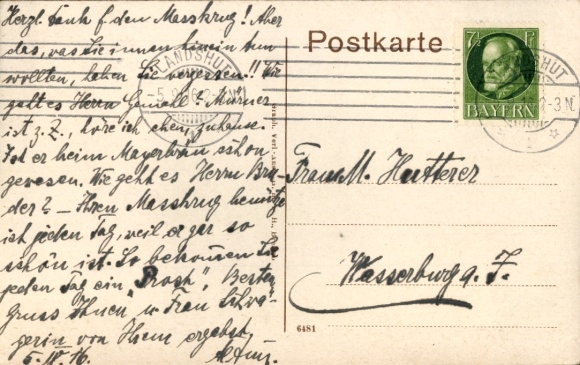 Herzl. Dank f. den Masskrug! Aber
das, was Sie innen hinein tun
wollten, haben Sie vergessen!! Wie
geht es Herrn Gemahl?
ist z. Z., höre ich eben, zuhause.
Ist er beim Mayerbräu schon
gewesen. Wie geht es Herrn Bru-
der? – Ihren Masskrug benütze
ich jeden Tag, weil er gar so
schön ist. So bekommen Sie
jeden Tag ein „Prosit". Besten
Gruss Ihnen u. Frau Schwä
gerin von Ihrem ergebst.
5. IX. 16.
Postkarte
LANDSHUT
7½ Pf
BAYERN
LANDSHUT
Frau M. Hutterer
Wasserburg a. I.
6481